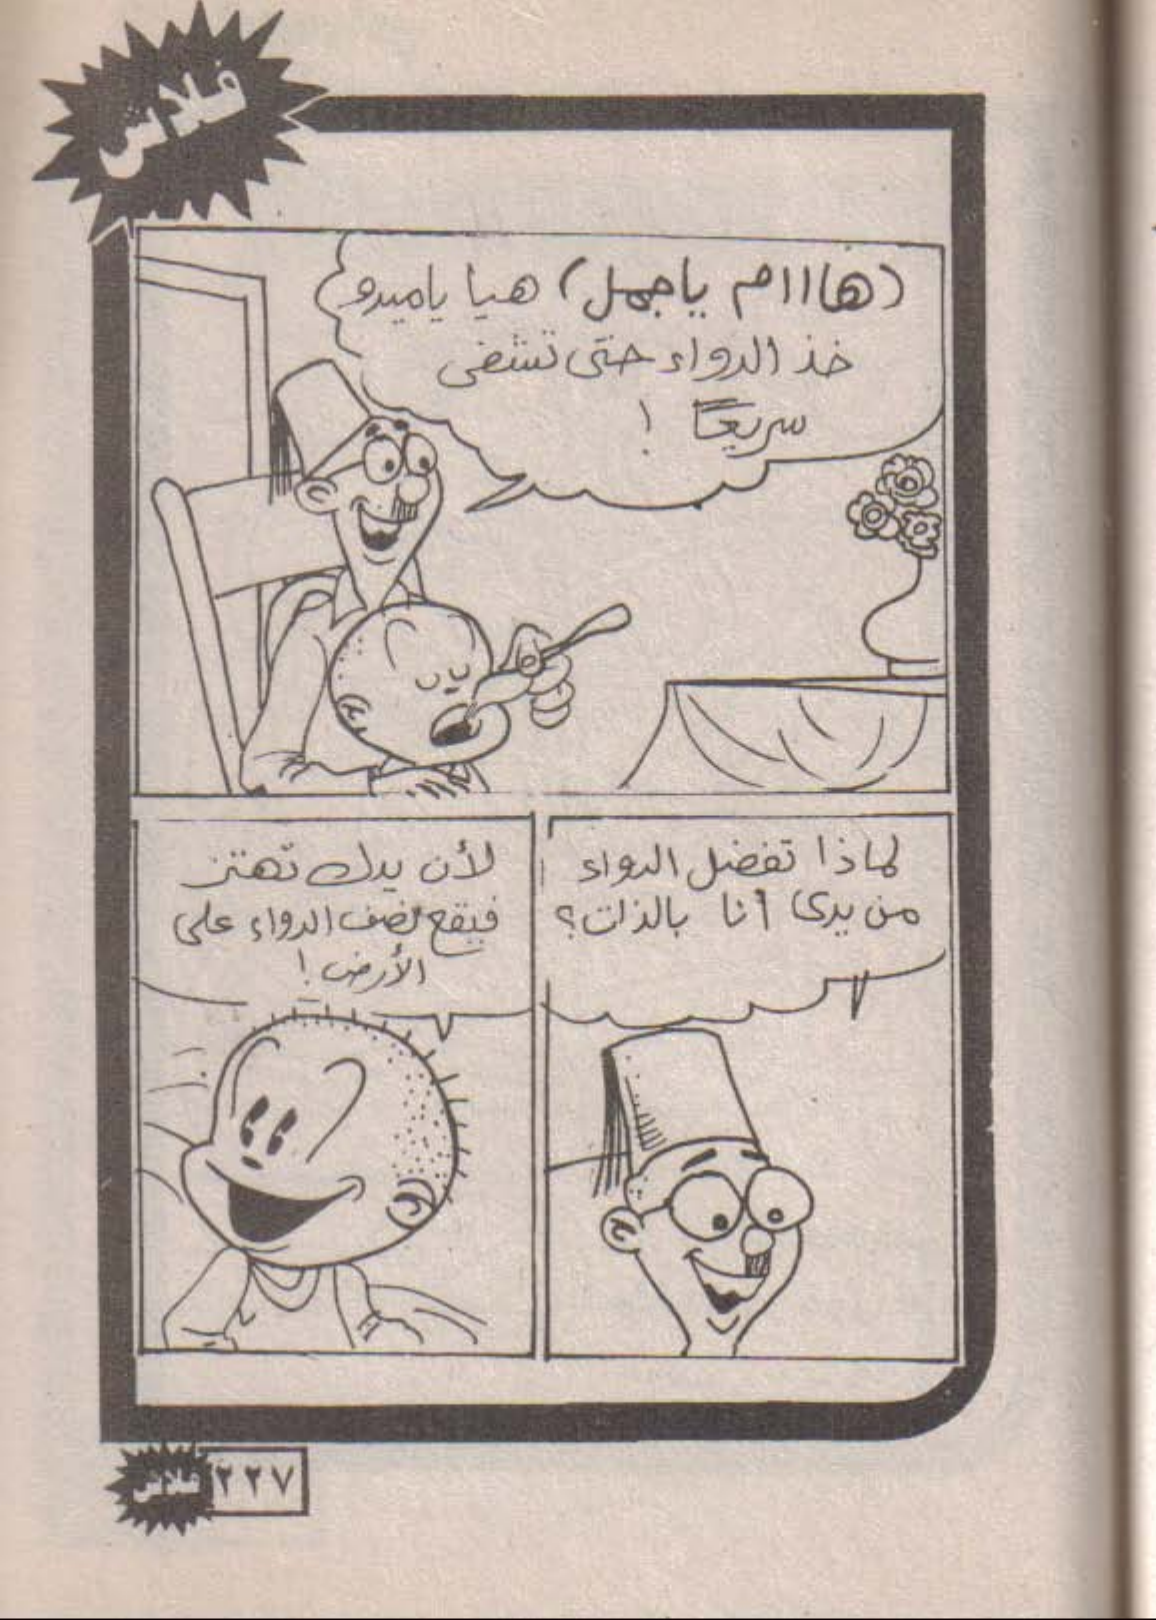 فلاش
(هااام ياجمل) هيا ياميدو
خذ الدواء حتى تشفى
سريعًا !
لماذا تفضل الدواء
من يدى أنا بالذات؟
لأن يدك تهتز
فيقع نصف الدواء على
الأرض !
فلاش ٢٢٧